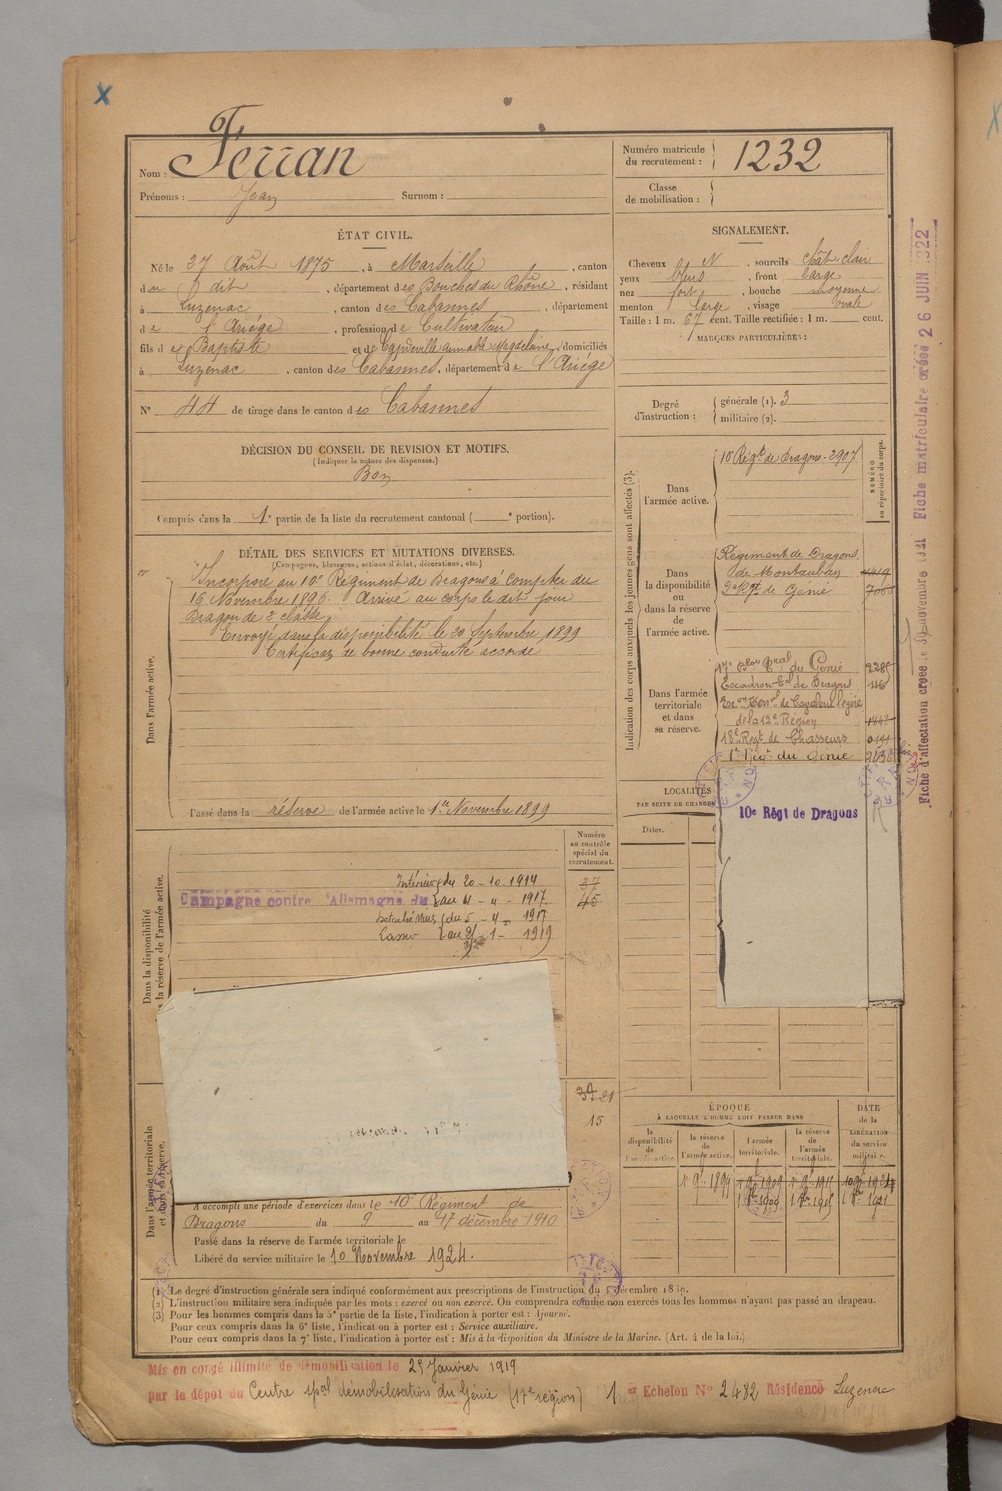 Nom : Ferran
Prénoms : Jean Surnom :
Numéro matricule du recrutement : 1232
Classe de mobilisation :
ÉTAT CIVIL.
Né le 27 Août 1875, à Marseille, canton
du dit, département des Bouches du Rhône, résidant
à Luzenac, canton des Cabannes, département
de l'Ariége, profession de Cultivateur
fils de Baptiste et de Capdeville Magdelaine, domiciliés
à Luzenac, canton des Cabannes, département de l'Ariége
N° 44 de tirage dans le canton des Cabannes
SIGNALEMENT.
Cheveux N, sourcils chât clair
yeux bleus, front large
nez fort, bouche moyenne
menton large, visage ovale
Taille : 1 m. 67 cent. Taille rectifiée : 1 m. cent.
MARQUES PARTICULIÈRES :
Degré d'instruction : générale (1). 3
militaire (2).
DÉCISION DU CONSEIL DE REVISION ET MOTIFS.
(Indiquer la nature des dispenses.)
Bon
Compris dans la 1e partie de la liste du recrutement cantonal ( e portion).
DÉTAIL DES SERVICES ET MUTATIONS DIVERSES.
(Campagnes, blessures, actions d'éclat, décorations, etc.)
Dans l'armée active.
Incorporé au 10e Régiment de Dragons à compter du
16 Novembre 1896. Arrivé au corps le dit jour
Dragon de 2e classe,
Envoyé dans la disponibilité le 20 Septembre 1899
Certificat de bonne conduite accordé
Passé dans la réserve de l'armée active le 1er Novembre 1899
Indication des corps auxquels les jeunes gens sont affectés (3).
NUMÉRO au répertoire du corps.
Dans l'armée active.
10e Régt de Dragons - 2907
Dans la disponibilité ou dans la réserve de l'armée active.
Régiment de Dragons
de Montauban
2e Régt de Génie
Dans l'armée territoriale et dans sa réserve.
17e Bon Tral du Génie
Escadron Tal de Dragons
de la 12e Région
18e Régt de Chasseurs
1er Régt du Génie
LOCALITÉS
Dates.
10e Régt de Dragons
Fiche d'affectation créée le novembre
Fiche matriculaire créée 26 JUIN 1922
Dans la disponibilité
la réserve de l'armée active.
Numéro au contrôle spécial du recrutement.
Intérieur du 20-10-1914
Campagne contre l'Allemagne du au 4-4-1917
du 5-4-1917
au 1-1919
37
45
21
15
Dans l'armée territoriale
A accompli une période d'exercices dans le 10e Régiment de
Dragons du 9 au 17 décembre 1910
Passé dans la réserve de l'armée territoriale le
Libéré du service militaire le 10 Novembre 1924.
ÉPOQUE
À LAQUELLE L'HOMME DOIT PASSER DANS
la disponibilité de l'armée active.
la réserve de l'armée active.
l'armée territoriale.
la réserve de l'armée territoriale.
DATE de la LIBÉRATION du service militaire.
(1) Le degré d'instruction générale sera indiqué conformément aux prescriptions de l'instruction du décembre
(2) L'instruction militaire sera indiquée par les mots : exercé ou non exercé. On comprendra comme non exercés tous les hommes n'ayant pas passé au drapeau.
(3) Pour les hommes compris dans la 5e partie de la liste, l'indication à porter est : Ajourné.
Pour ceux compris dans la 6e liste, l'indication à porter est : Service auxiliaire.
Pour ceux compris dans la 7e liste, l'indication à porter est : Mis à la disposition du Ministre de la Marine. (Art. 4 de la loi.)
Mis en congé illimité de démobilisation le 25 Janvier 1919
par le dépôt du Centre spécial démobilisation du Génie (17e région) 1er Echelon N° 2482 Résidence Luzenac